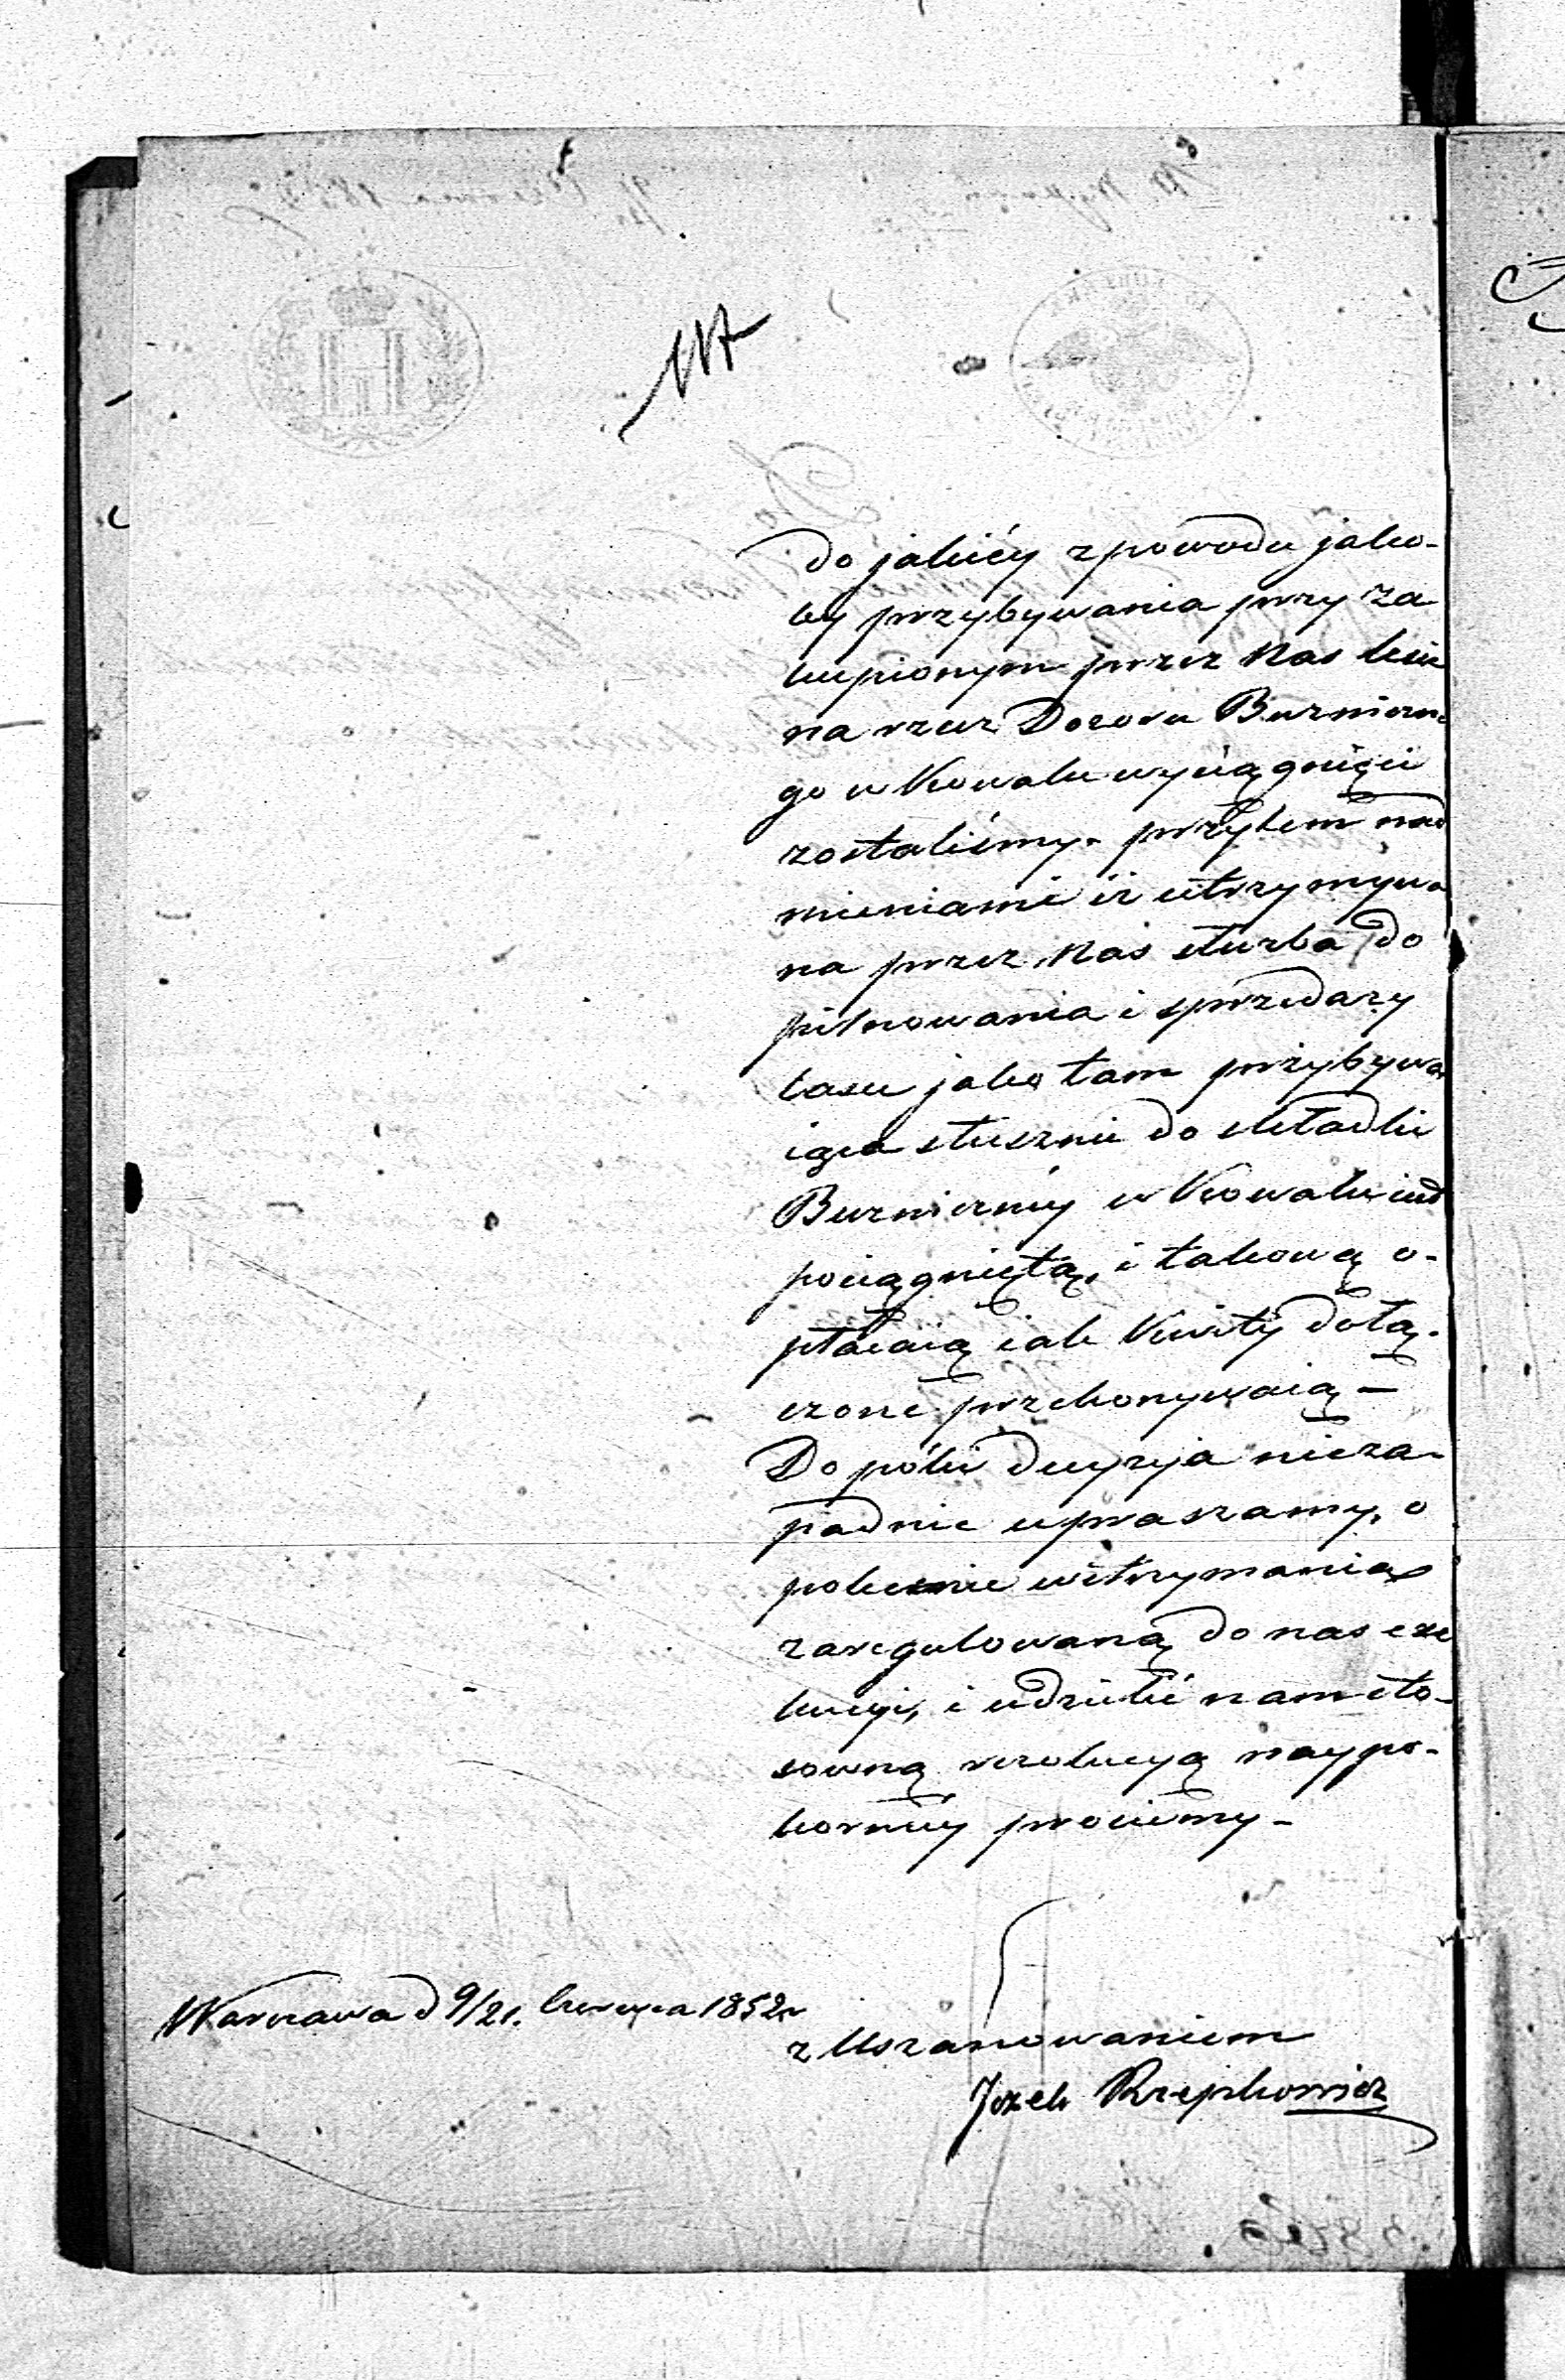 117
do jakiéy z powodu jako-
by przybywania przy za
kupionym przez Nas lesie
na rzecz Dozoru Burniczne
go w Kowalu wyciągnięci
zostaliśmy. przytem nad
mieniami iż utrzymywa
na przez Nas służba do
pilnowania i sprzedaży
lasu jako tam przybywa
iąca słusznie do składki
Burniczniy w Kowalu iest
pociągniętą, i takową o-
płacaią iak Kwity dołą-
czone przekonywaią —
Do póki decyzja nieza-
padnie upraszamy, o
polecenie wstrzymania
zaregulowaną do nas exe
kucyi, i udzielić nam sto-
sowną rezolucyą naypo-
korniéy prosiemy -
Warszawa d 9/21. Czerwca 1852r
z Uszanowaniem
Jozek Rzepkowicz